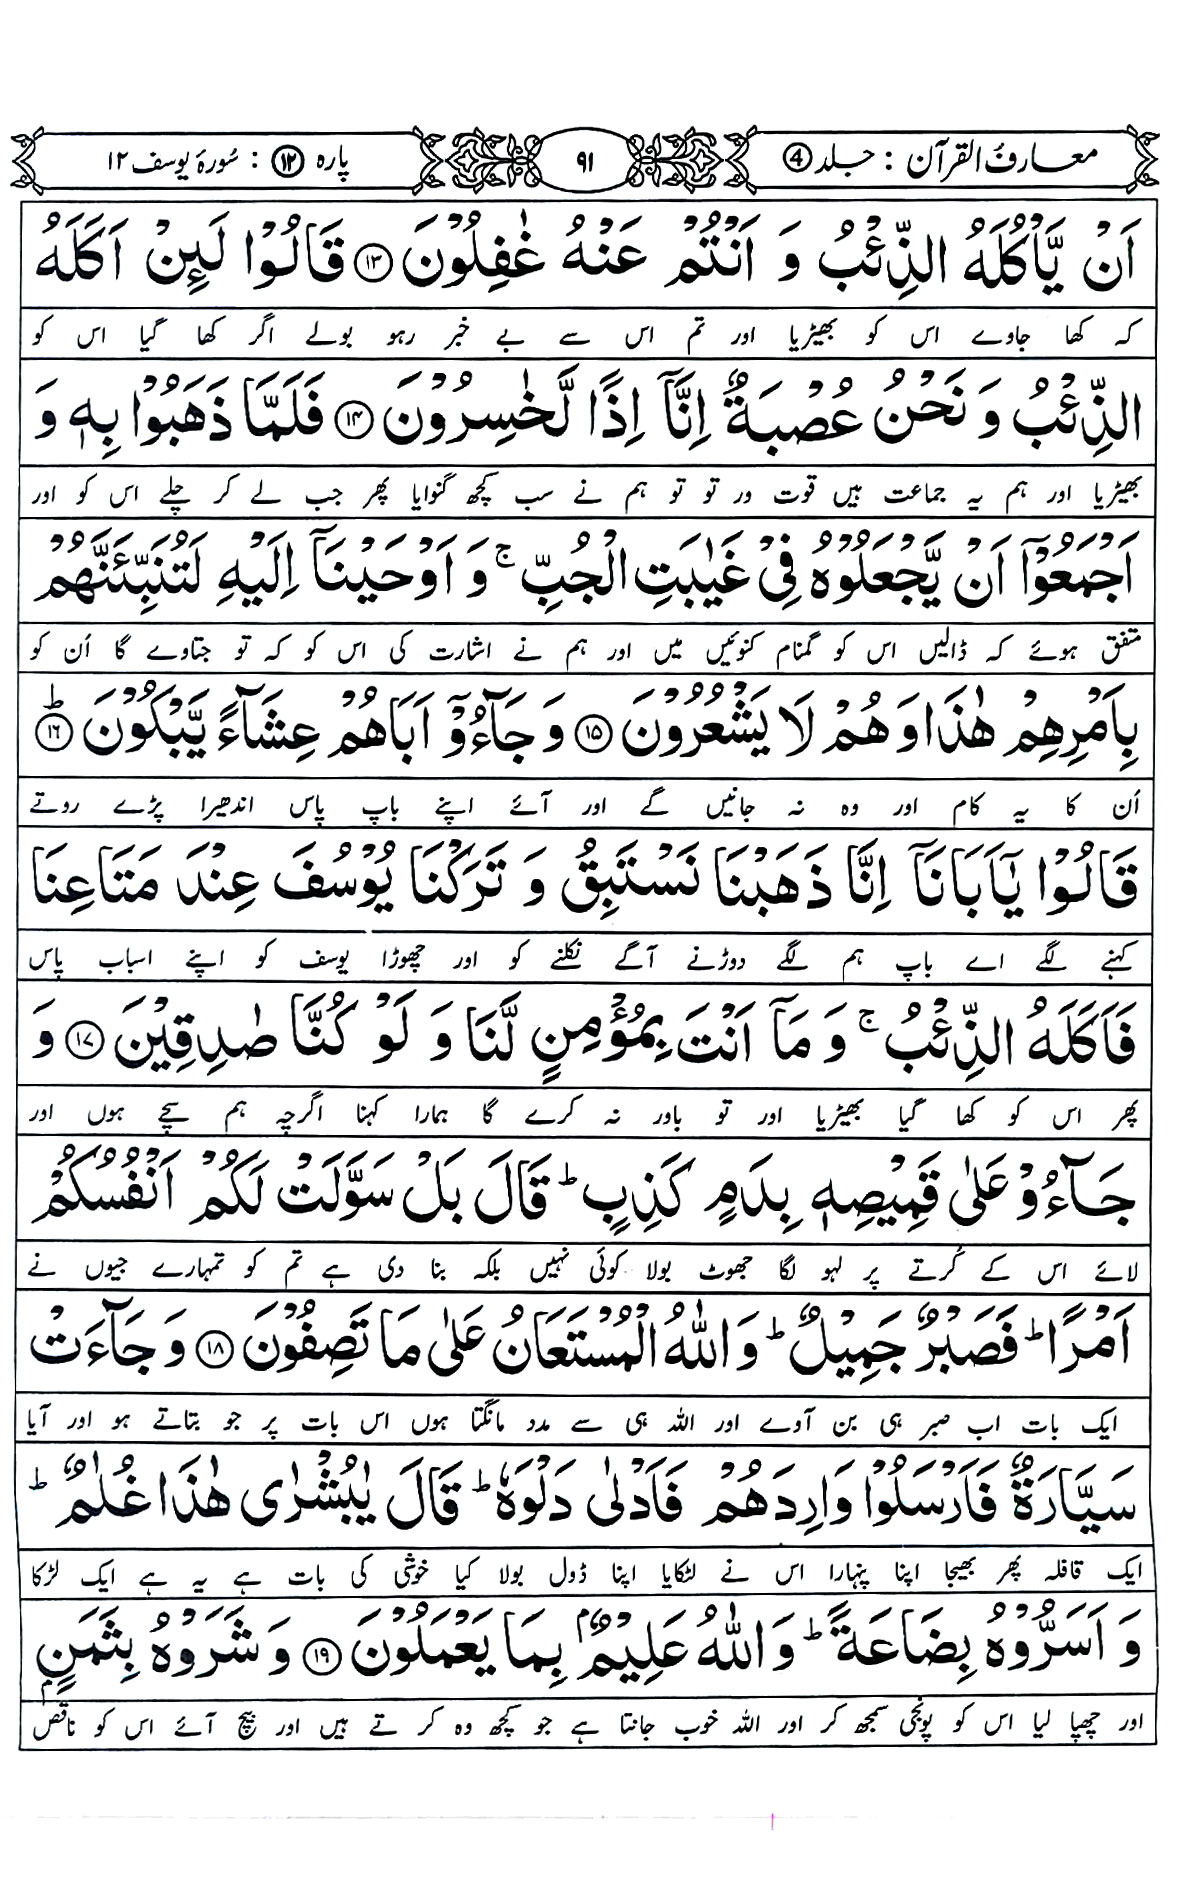 معارف القرآن : جلد ④
۹۱
پارہ ⑫ : سُورۂ یوسف ۱۲
اَنْ يَّاْكُلَهُ الذِّئْبُ وَ اَنْتُمْ عَنْهُ غٰفِلُوْنَ ⑬ قَالُوْا لَىِٕنْ اَكَلَهُ
کہ کھا جاوے اس کو بھیڑیا اور تم اس سے بے خبر رہو بولے اگر کھا گیا اس کو
الذِّئْبُ وَ نَحْنُ عُصْبَةٌ اِنَّاۤ اِذًا لَّخٰسِرُوْنَ ⑭ فَلَمَّا ذَهَبُوْا بِهٖ وَ
بھیڑیا اور ہم یہ جماعت ہیں قوت ور تو تو ہم نے سب کچھ گنوایا پھر جب لے کر چلے اس کو اور
اَجْمَعُوْۤا اَنْ يَّجْعَلُوْهُ فِيْ غَيٰبَتِ الْجُبِّ ۚ وَ اَوْحَيْنَاۤ اِلَيْهِ لَتُنَبِّئَنَّهُمْ
متفق ہوئے کہ ڈالیں اس کو گمنام کنوئیں میں اور ہم نے اشارت کی اس کو کہ تو جتاوے گا اُن کو
بِاَمْرِهِمْ هٰذَا وَ هُمْ لَا يَشْعُرُوْنَ ⑮ وَ جَآءُوْۤ اَبَاهُمْ عِشَآءً يَّبْكُوْنَ ⑯ؕ
اُن کا یہ کام اور وہ نہ جانیں گے اور آئے اپنے باپ پاس اندھیرا پڑے روتے
قَالُوْا يٰۤاَبَانَاۤ اِنَّا ذَهَبْنَا نَسْتَبِقُ وَ تَرَكْنَا يُوْسُفَ عِنْدَ مَتَاعِنَا
کہنے لگے اے باپ ہم لگے دوڑنے آگے نکلنے کو اور چھوڑا یوسف کو اپنے اسباب پاس
فَاَكَلَهُ الذِّئْبُ ۚ وَ مَاۤ اَنْتَ بِمُؤْمِنٍ لَّنَا وَ لَوْ كُنَّا صٰدِقِيْنَ ⑰ وَ
پھر اس کو کھا گیا بھیڑیا اور تو باور نہ کرے گا ہمارا کہنا اگرچہ ہم سچے ہوں اور
جَآءُوْ عَلٰى قَمِيْصِهٖ بِدَمٍ كَذِبٍ ؕ قَالَ بَلْ سَوَّلَتْ لَكُمْ اَنْفُسُكُمْ
لائے اس کے کُرتے پر لہو لگا جھوٹ بولا کوئی نہیں بلکہ بنا دی ہے تم کو تمہارے جیوں نے
اَمْرًا ؕ فَصَبْرٌ جَمِيْلٌ ؕ وَاللّٰهُ الْمُسْتَعَانُ عَلٰى مَا تَصِفُوْنَ ⑱ وَ جَآءَتْ
ایک بات اب صبر ہی بن آوے اور اللہ ہی سے مدد مانگتا ہوں اس بات پر جو بتاتے ہو اور آیا
سَيَّارَةٌ فَاَرْسَلُوْا وَارِدَهُمْ فَاَدْلٰى دَلْوَهٗ ؕ قَالَ يٰبُشْرٰى هٰذَا غُلٰمٌ ؕ
ایک قافلہ پھر بھیجا اپنا پنہارا اس نے لٹکایا اپنا ڈول بولا کیا خوشی کی بات ہے یہ ہے ایک لڑکا
وَ اَسَرُّوْهُ بِضَاعَةً ؕ وَاللّٰهُ عَلِيْمٌۢ بِمَا يَعْمَلُوْنَ ⑲ وَ شَرَوْهُ بِثَمَنٍۭ
اور چھپا لیا اس کو پونجی سمجھ کر اور اللہ خوب جانتا ہے جو کچھ وہ کر تے ہیں اور بیچ آئے اس کو ناقص